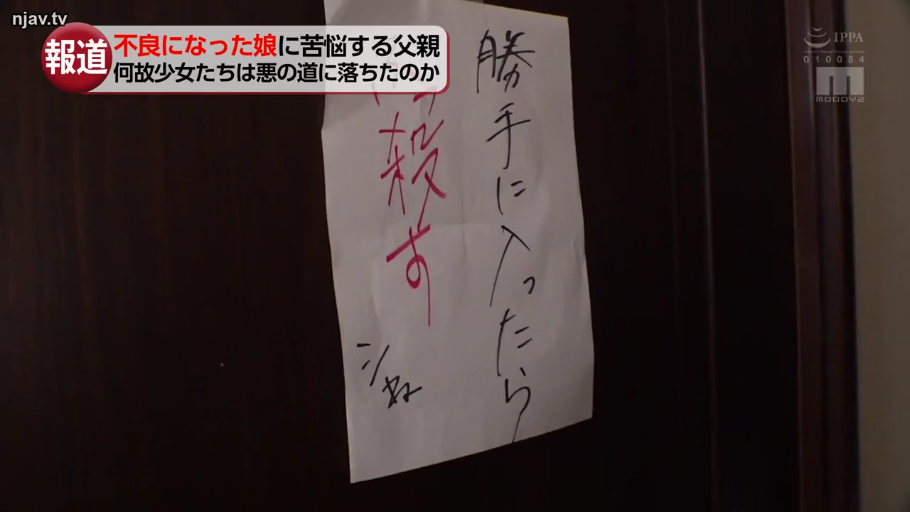 njav.tv
報道
不良になった娘に苦悩する父親
何故少女たちは悪の道に落ちたのか
IPPA
010054
M
MOODYZ
勝手に入ったら
殺す
シね